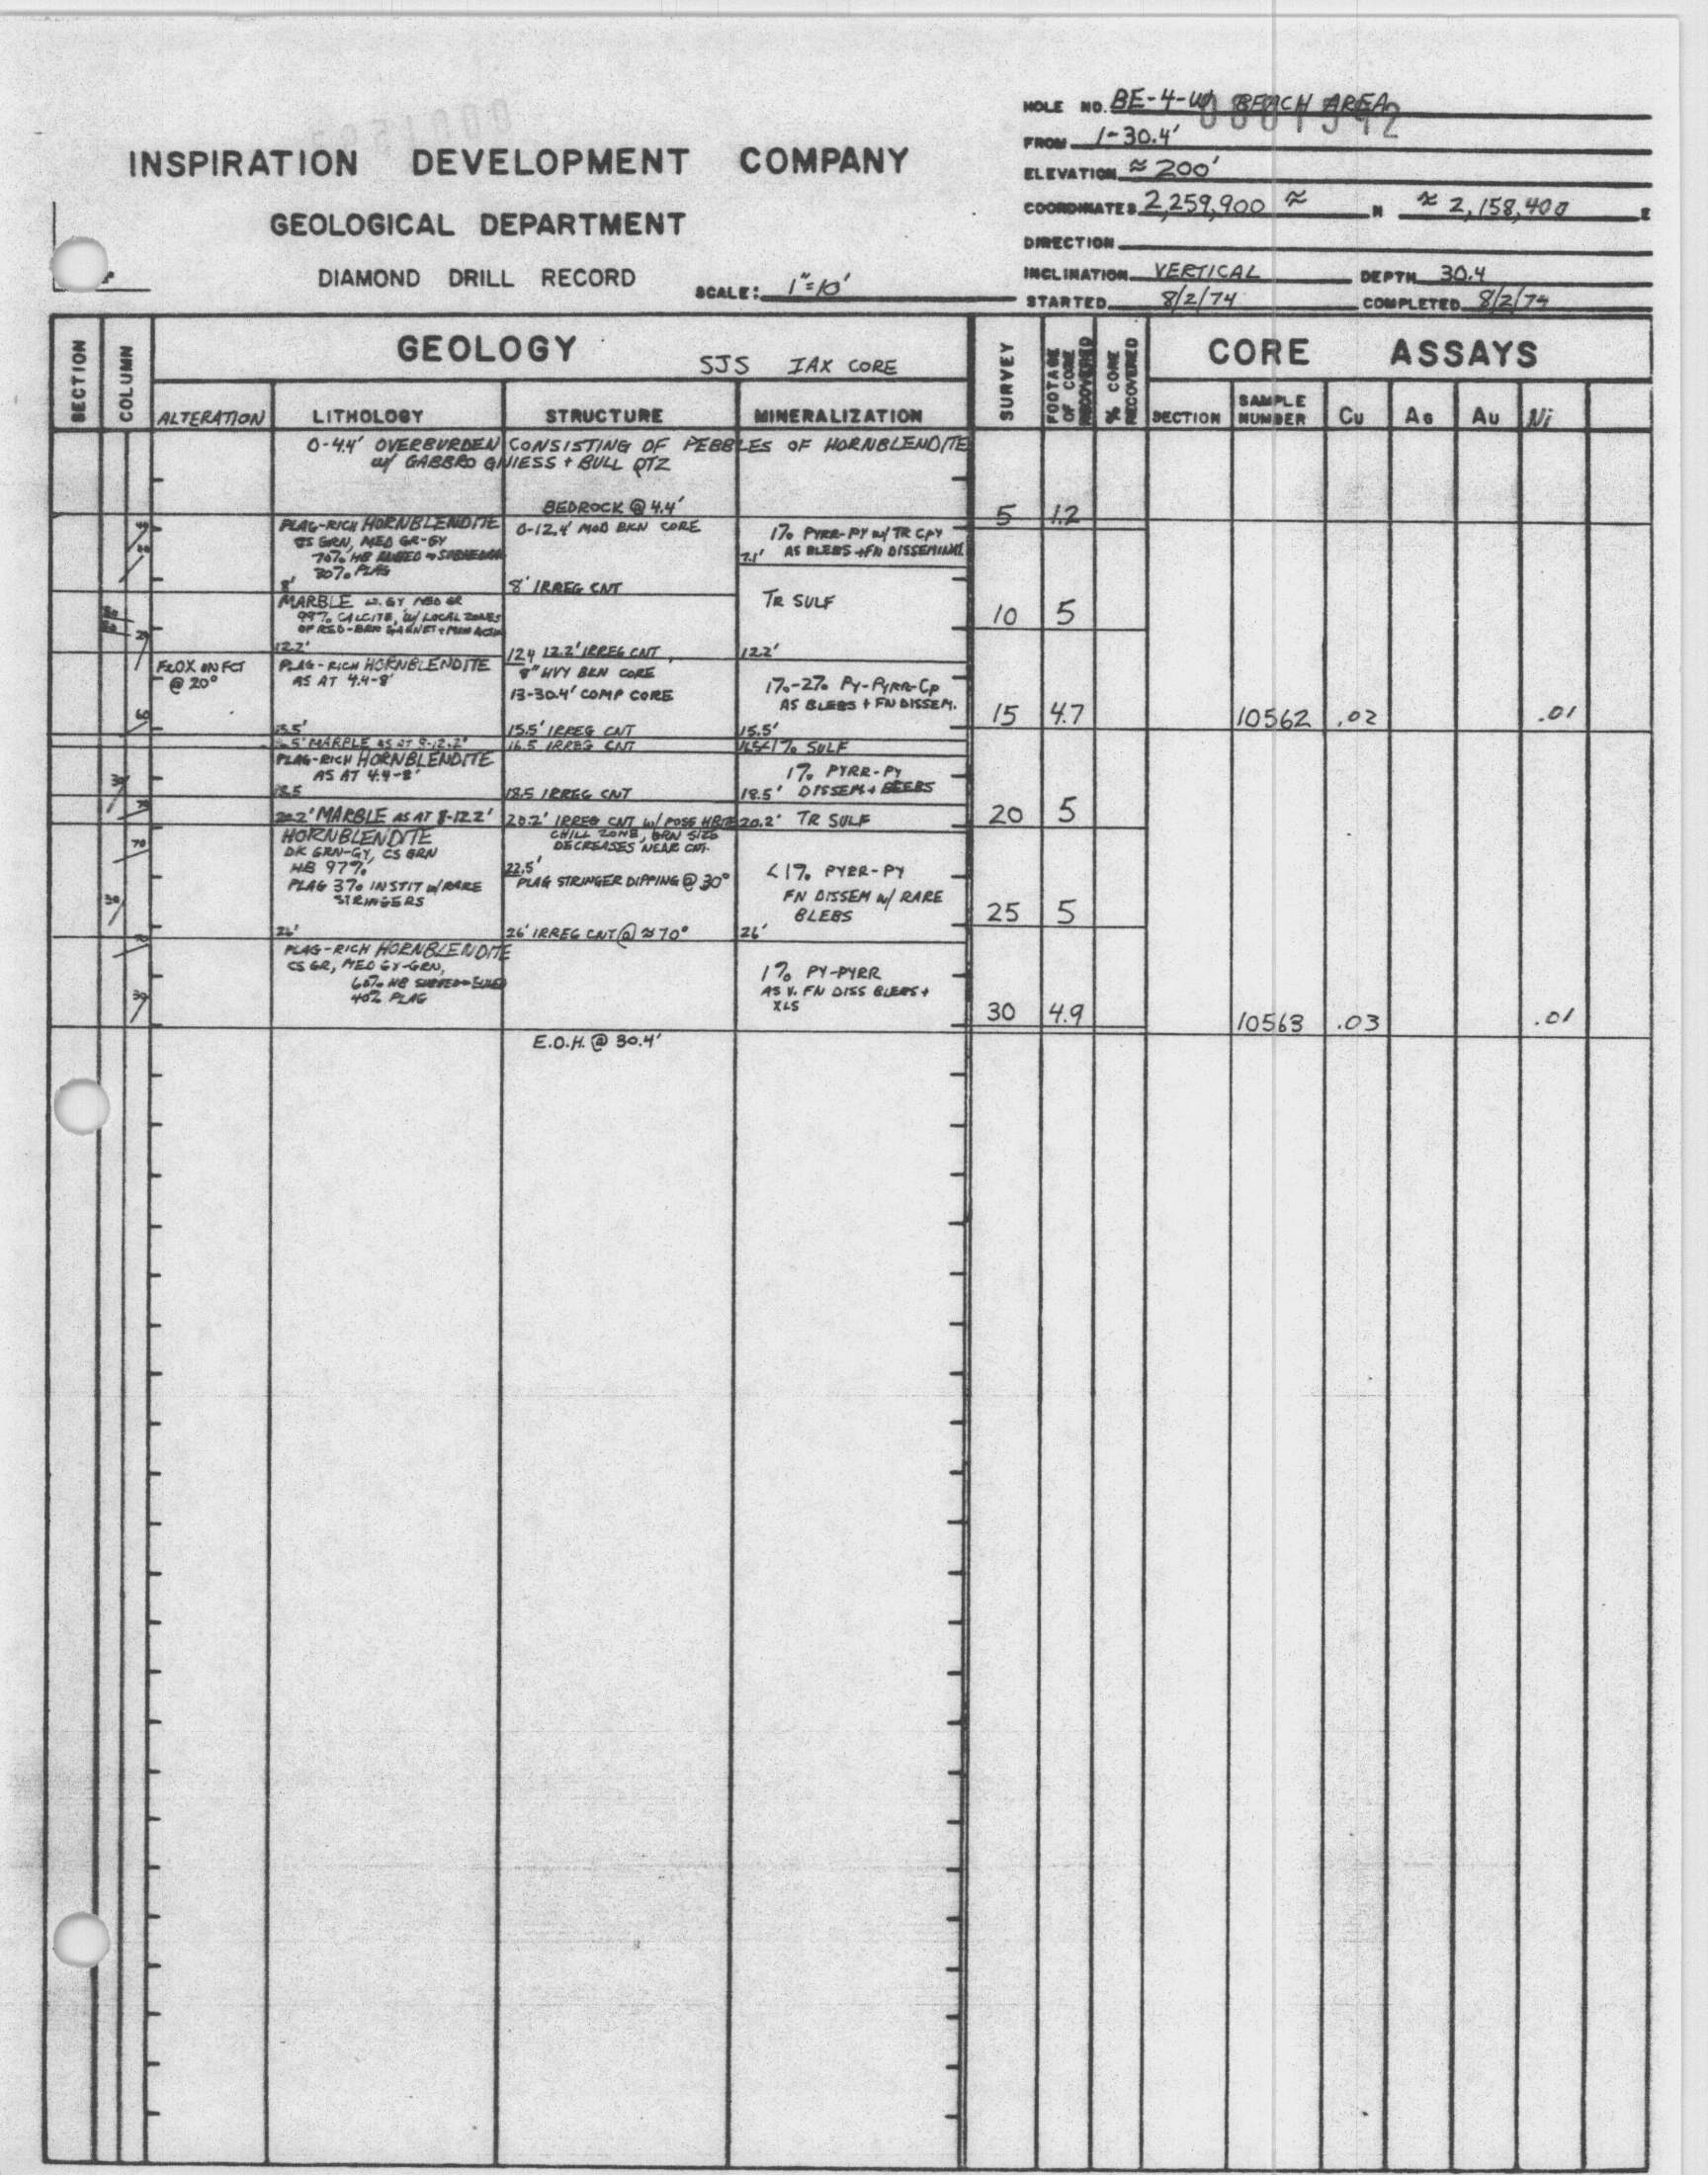 HOLE NO. BE-4-W BEACH AREA
0001592
FROM 1-30.4'
INSPIRATION DEVELOPMENT COMPANY
ELEVATION ≈ 200'
COORDINATES 2,259,900 ≈ N ≈ 2,158,400 E
GEOLOGICAL DEPARTMENT
DIRECTION
DIAMOND DRILL RECORD
SCALE: 1"=10'
INCLINATION VERTICAL DEPTH 30.4
STARTED 8/2/74 COMPLETED 8/2/74
SECTION
COLUMN
GEOLOGY
SJS IAX CORE
SURVEY
FOOTAGE OF CORE RECOVERED
% CORE RECOVERED
CORE ASSAYS
ALTERATION LITHOLOGY STRUCTURE MINERALIZATION
SECTION SAMPLE NUMBER Cu Ag Au Ni
0-4.4' OVERBURDEN CONSISTING OF PEBBLES OF HORNBLENDITE
w/ GABBRO GNIESS + BULL QTZ
BEDROCK @ 4.4'
5 1.2
PLAG-RICH HORNBLENDITE
CS GRN, MED GR-GY
70% HB
30% PLAG
8'
0-12.4' MOD BKN CORE
1% PYRR-PY w/ TR CPY
7.1' AS BLEBS + FN DISSEMINAT
8' IRREG CNT
MARBLE LT. GY MED GR
99% CALCITE, w/ LOCAL ZONES
OF RED-BRN GARNET +
12.2'
TR SULF
10 5
12.4 12.2' IRREG CNT
12.2'
FEOX ON FCT
@ 20°
PLAG-RICH HORNBLENDITE
AS AT 4.4-8'
8" HVY BKN CORE
13-30.4' COMP CORE
1%-2% PY-PYRR-CP
AS BLEBS + FN DISSEM.
15 4.7
10562 .02 .01
60
15.5'
15.5' IRREG CNT
15.5'
16.5' MARBLE AS AT 8-12.2'
16.5 IRREG CNT
16.5 <1% SULF
PLAG-RICH HORNBLENDITE
AS AT 4.4-8'
18.5
18.5 IRREG CNT
1% PYRR-PY
18.5' DISSEM + BLEBS
20 5
20.2' MARBLE AS AT 8-12.2'
20.2' IRREG CNT w/ POSS HBITE
CHILL ZONE, GRN SIZE
DECREASES NEAR CNT.
20.2' TR SULF
70
HORNBLENDITE
DK GRN-GY, CS GRN
HB 97%
PLAG 3% INSTIT w/ RARE
STRINGERS
22.5'
PLAG STRINGER DIPPING @ 30°
<1% PYRR-PY
FN DISSEM w/ RARE
BLEBS
25 5
30
26'
26' IRREG CNT @ ≈ 70°
26'
PLAG-RICH HORNBLENDITE
CS GR, MED GY-GRN,
60% HB
40% PLAG
1% PY-PYRR
AS V. FN DISS BLEBS +
XLS
30 4.9
10563 .03 .01
E.O.H. @ 30.4'